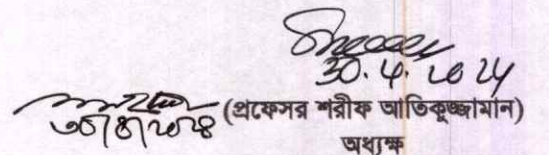 30.4.2024
৩০/৪/২০২৪ (প্রফেসর শরীফ আতিকুজ্জামান)
অধ্যক্ষ